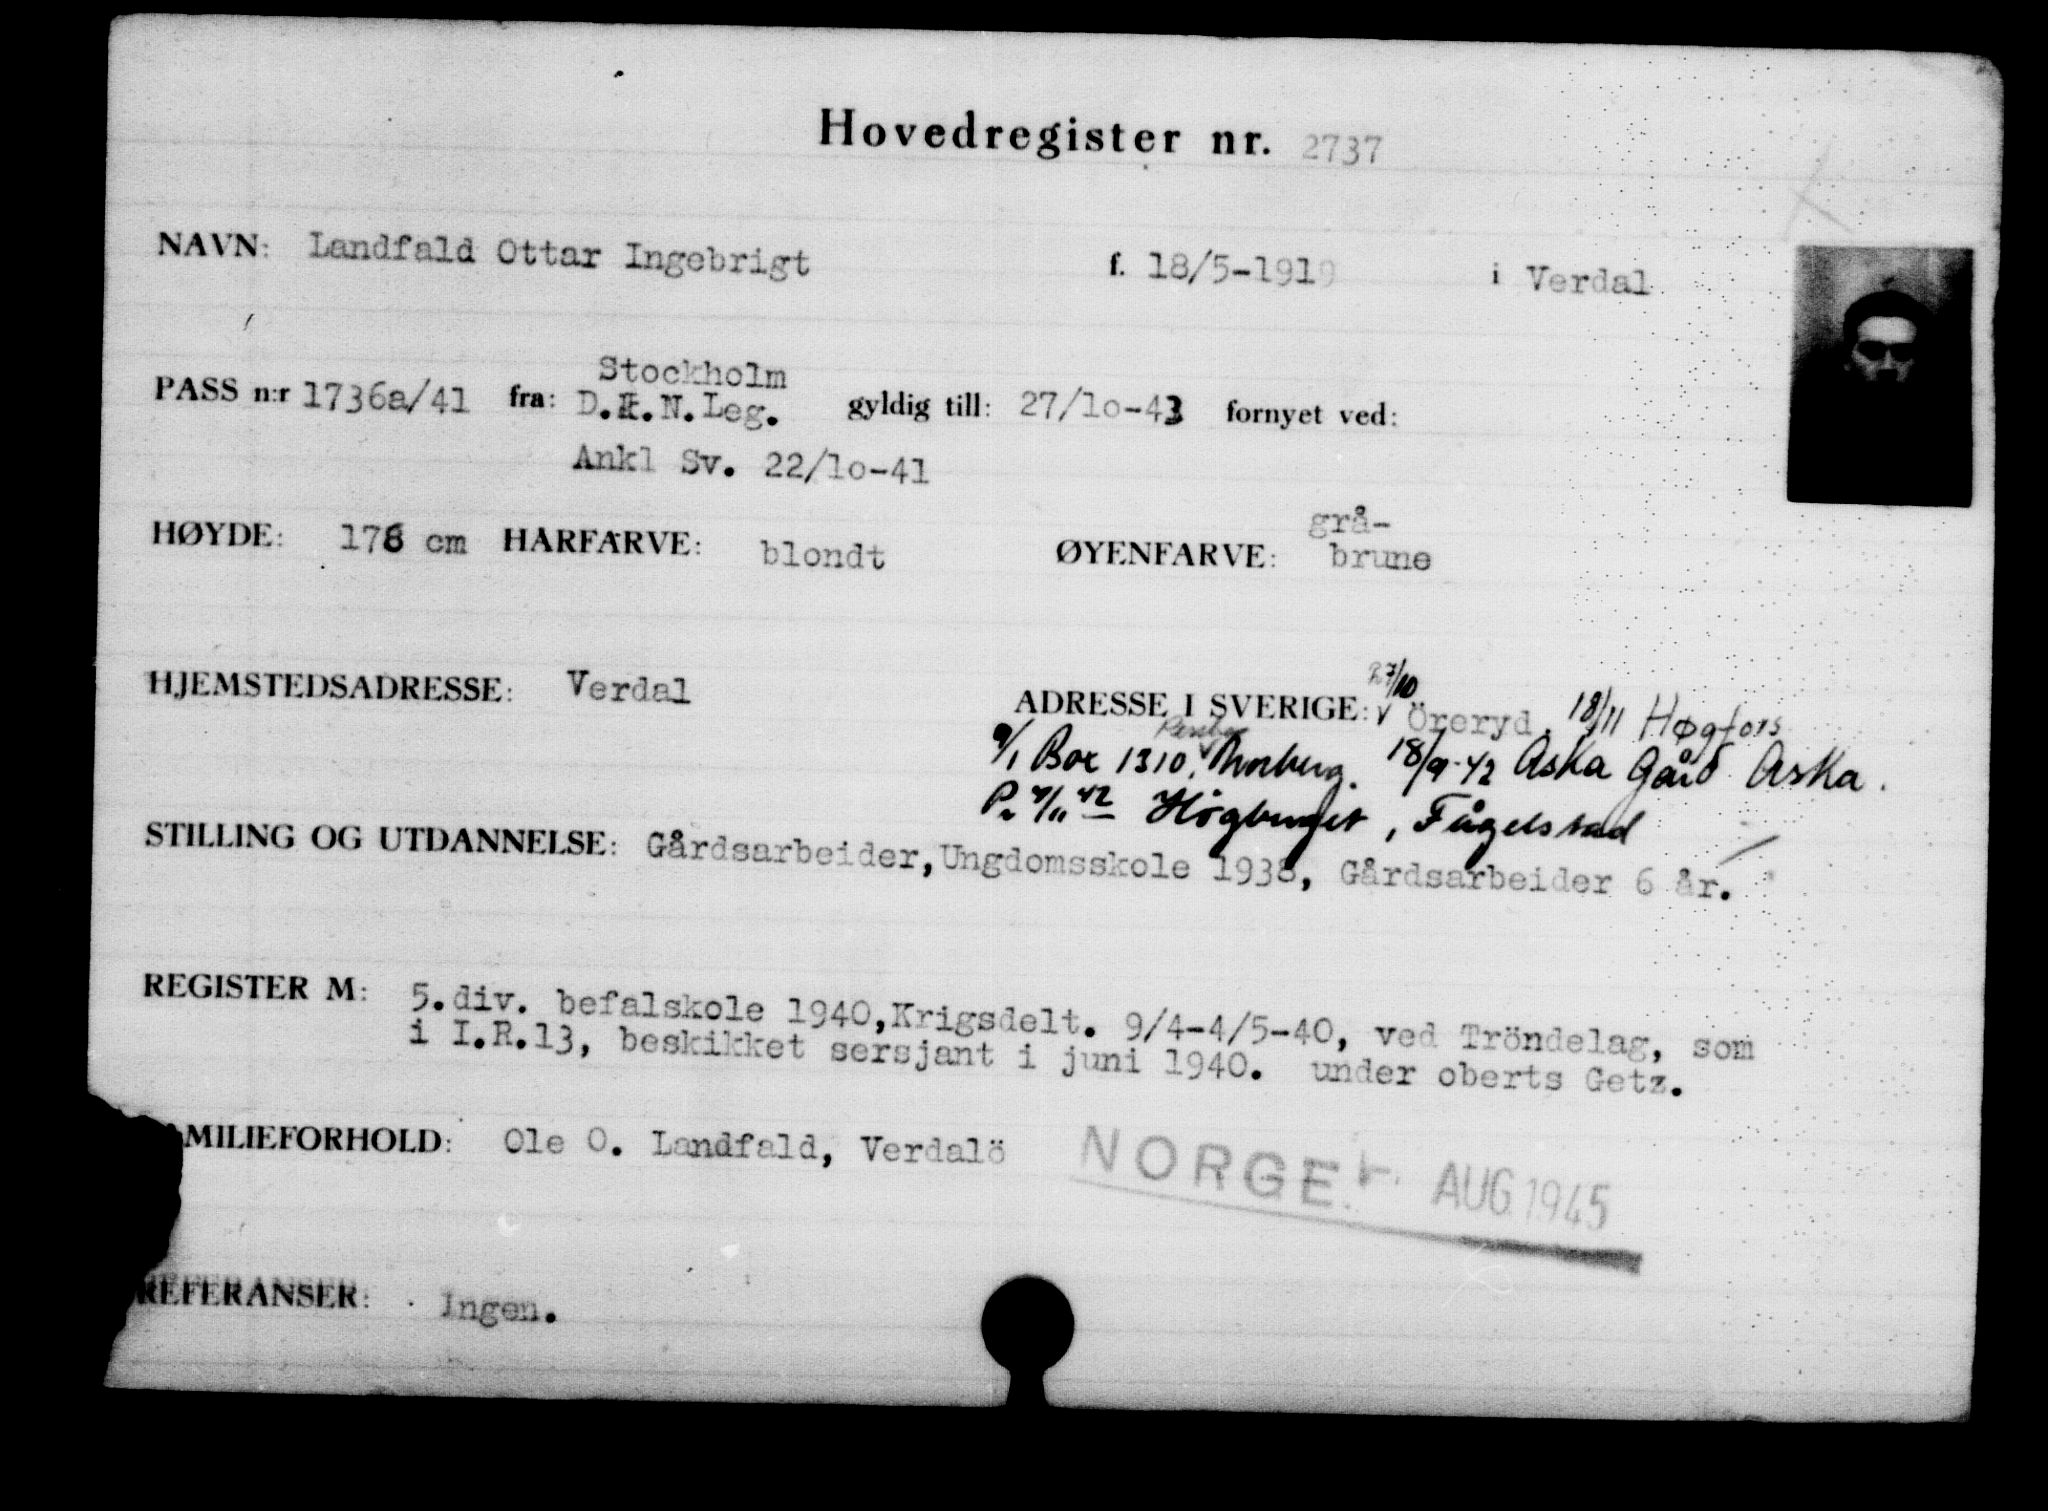 Hovedregister nr. 2737
NAVN: Landfald Ottar Ingebrigt f. 18/5-1919 i Verdal
Stockholm
PASS n:r 1736a/41 fra: D.K.N.Leg. gyldig till: 27/1o-43 fornyet ved:
Ankl Sv. 22/1o-41
grå-
HØYDE: 178 cm HARFARVE: blondt ØYENFARVE: brune
27/10
HJEMSTEDSADRESSE: Verdal ADRESSE I SVERIGE: Öreryd. 18/11 Høgfors
9/1 Box 1310, Norberg. 18/9-42 Aska Gård Aska.
42 Högberget, Fågelstad
STILLING OG UTDANNELSE: Gårdsarbeider, Ungdomsskole 1938, Gårdsarbeider 6 år.
REGISTER M: 5.div. befalskole 1940, Krigsdelt. 9/4-4/5-40, ved Tröndelag, som
i I.R.13, beskikket sersjant i juni 1940. under oberts Getz.
AMILIEFORHOLD: Ole O. Landfald, Verdalö
NORGE. AUG 1945
REFERANSER: Ingen.